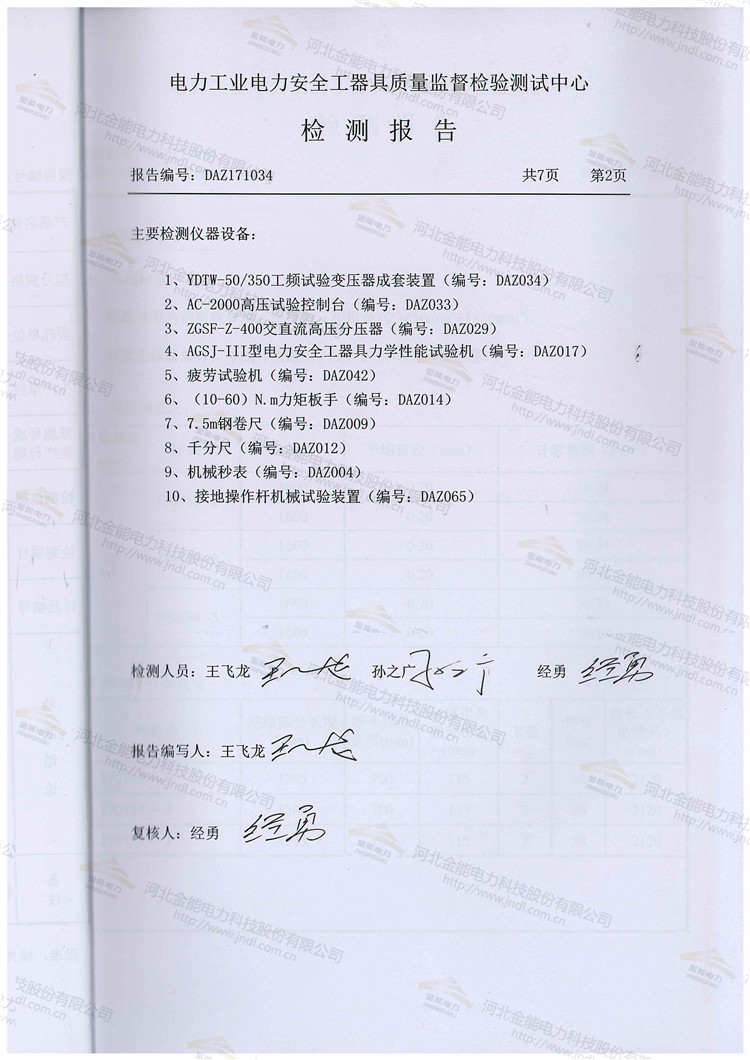 电力工业电力安全工器具质量监督检验测试中心
检 测 报 告
报告编号：DAZ171034 共7页 第2页
主要检测仪器设备：
1、YDTW-50/350工频试验变压器成套装置（编号：DAZ034）
2、AC-2000高压试验控制台（编号：DAZ033）
3、ZGSF-Z-400交直流高压分压器（编号：DAZ029）
4、AGSJ-III型电力安全工器具力学性能试验机（编号：DAZ017）
5、疲劳试验机（编号：DAZ042）
6、（10-60）N.m力矩板手（编号：DAZ014）
7、7.5m钢卷尺（编号：DAZ009）
8、千分尺（编号：DAZ012）
9、机械秒表（编号：DAZ004）
10、接地操作杆机械试验装置（编号：DAZ065）
检测人员：王飞龙 王飞龙 孙之广 孙之广 经勇 经勇
报告编写人：王飞龙 王飞龙
复核人：经勇 经勇
金能电力
河北金能电力科技股份有限公司
http://www.jndl.com.cn